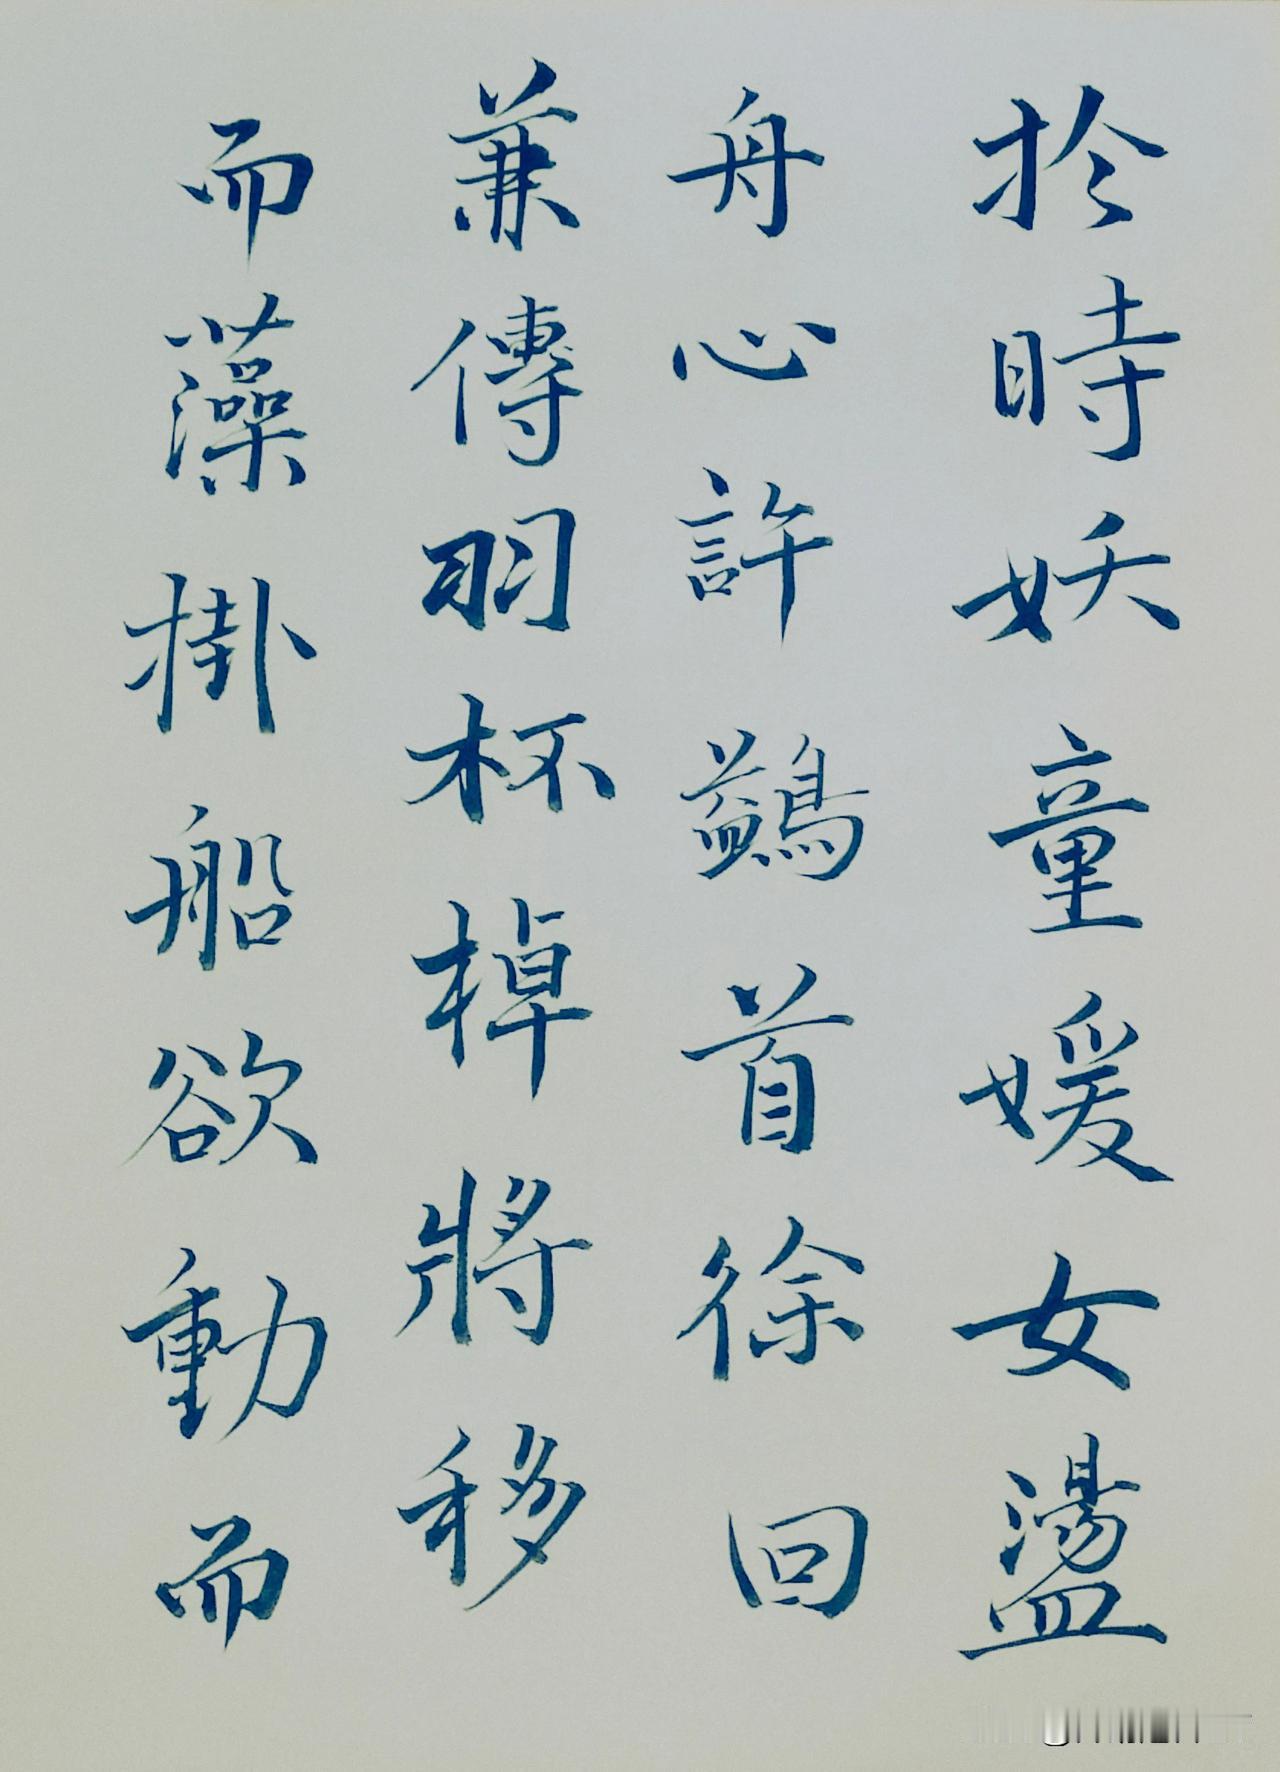 於時妖童媛女盪
舟心許鷁首徐回
兼傳羽杯棹將移
而藻掛船欲動而